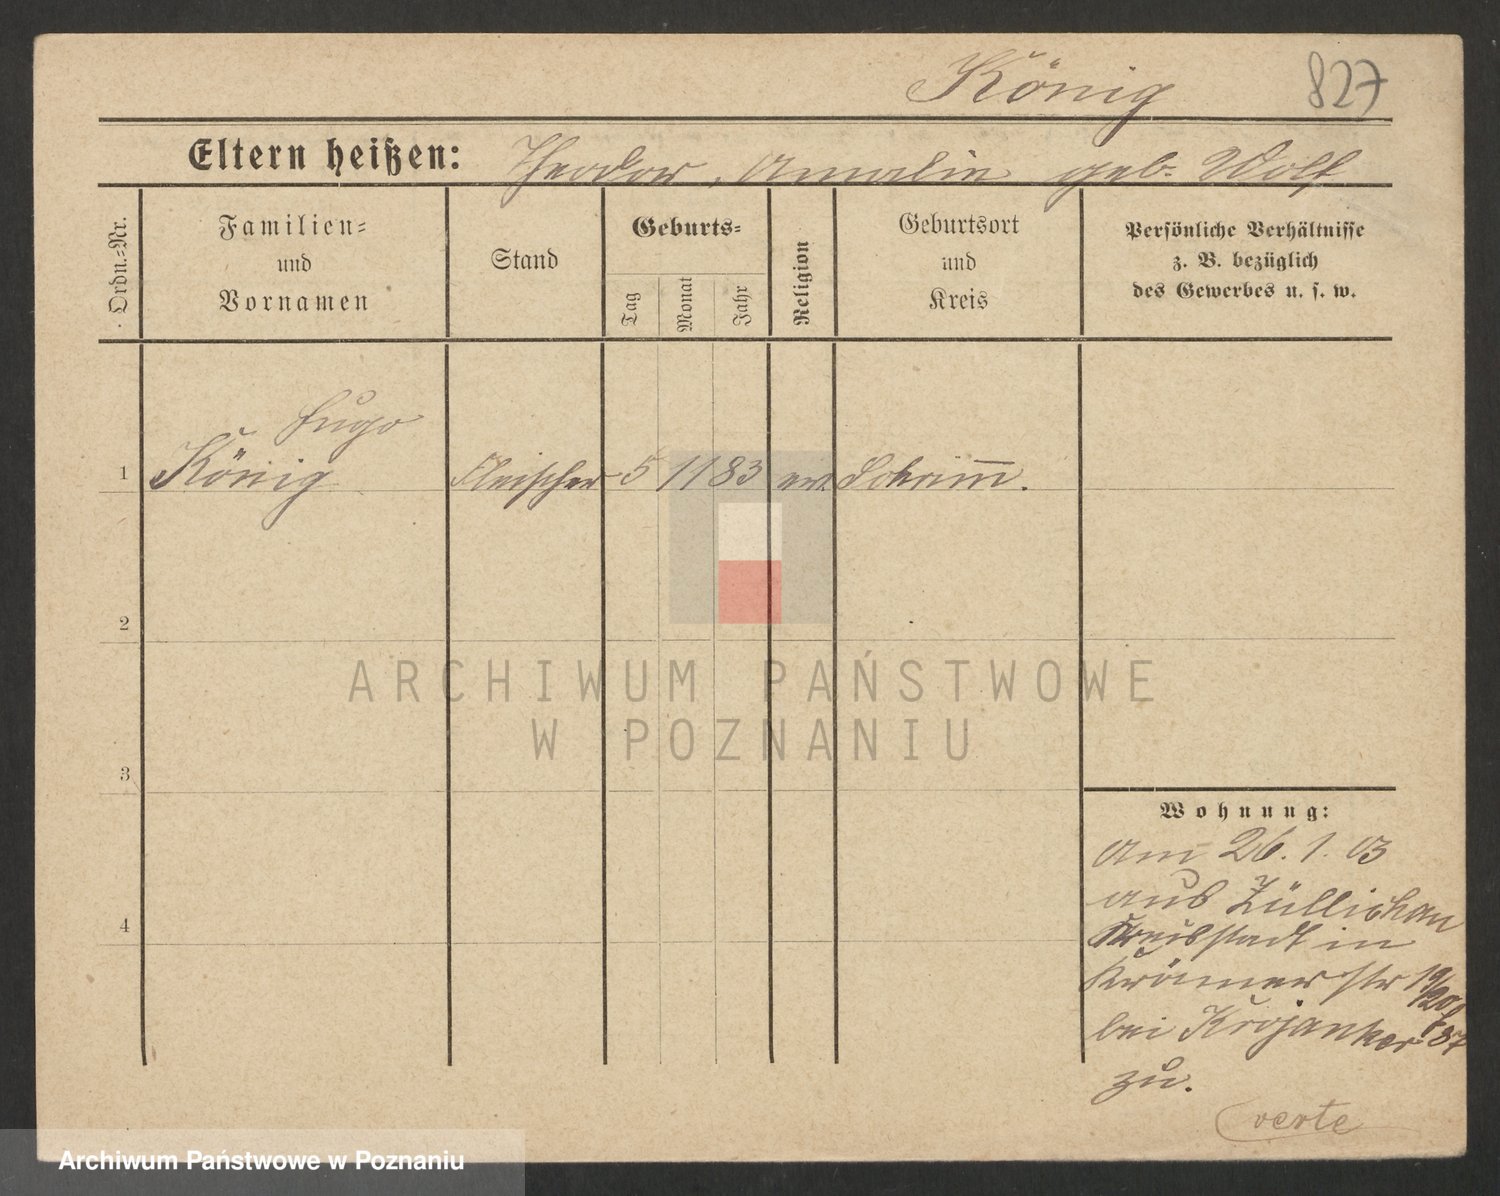 König 827
Eltern heißen: Theodor, Amalie geb. Wolf
Ordn.-Nr.
Familien-
und
Vornamen
Stand
Geburts-
Tag
Monat
Jahr
Religion
Geburtsort
und
Kreis
Persönliche Verhältnisse
z. B. bezüglich
des Gewerbes u. s. w.
Hugo
1 König Fleischer 5 11 83 Schrim̅.
2
3
4
Wohnung:
Am 26. 1. 03
aus Züllichau
Kreisstadt in
Krämerstr 19/20
bei Krojanker 87
zu.
verte
ARCHIWUM PAŃSTWOWE
W POZNANIU
Archiwum Państwowe w Poznaniu